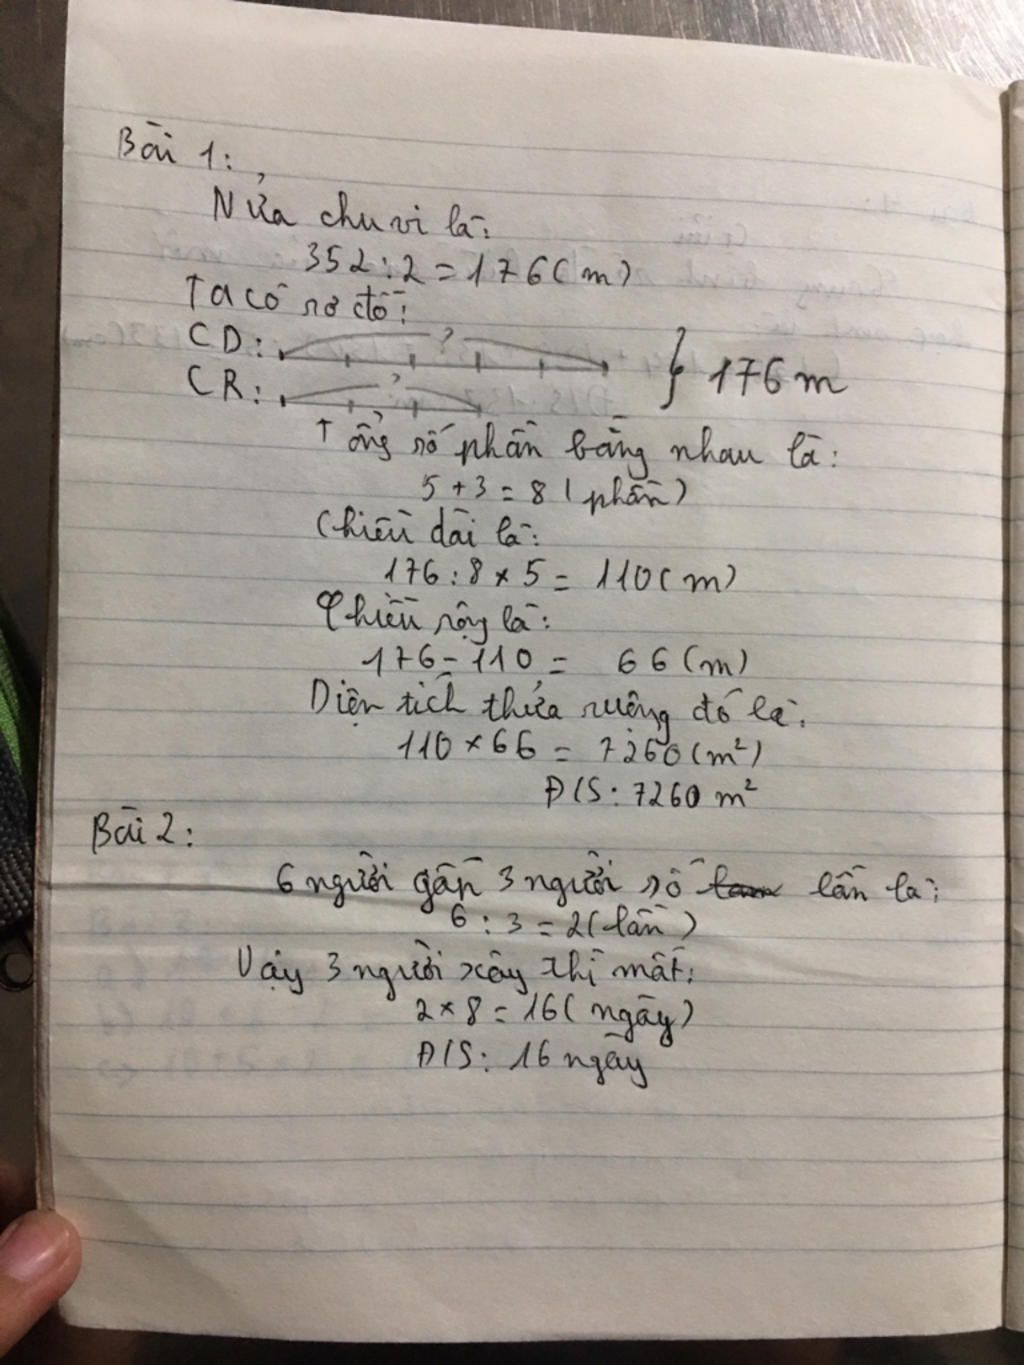 Bài 1:
Nửa chu vi là:
352 : 2 = 176 (m)
Ta có sơ đồ:
CD: ?
CR: ?
} 176 m
Tổng số phần bằng nhau là:
5 + 3 = 8 (phần)
Chiều dài là:
176 : 8 × 5 = 110 (m)
Chiều rộng là:
176 - 110 = 66 (m)
Diện tích thửa ruộng đó là:
110 × 66 = 7260 (m²)
Đ/S: 7260 m²
Bài 2:
6 người gấp 3 người số lần là:
6 : 3 = 2 (lần)
Vậy 3 người xây thì mất:
2 × 8 = 16 (ngày)
Đ/S: 16 ngày